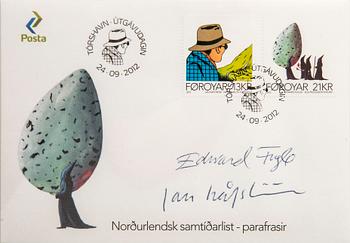 Posta
TÓRSHAVN · ÚTGÁVUDAGIN
24 · 09 · 2012
FØROYAR 13KR
FØROYAR 21KR
TÓRSHAVN · ÚTGÁVUDAGIN
24 · 09 · 2012
Edward Fuglø
Jan
Norðurlendsk samtíðarlist - parafrasir